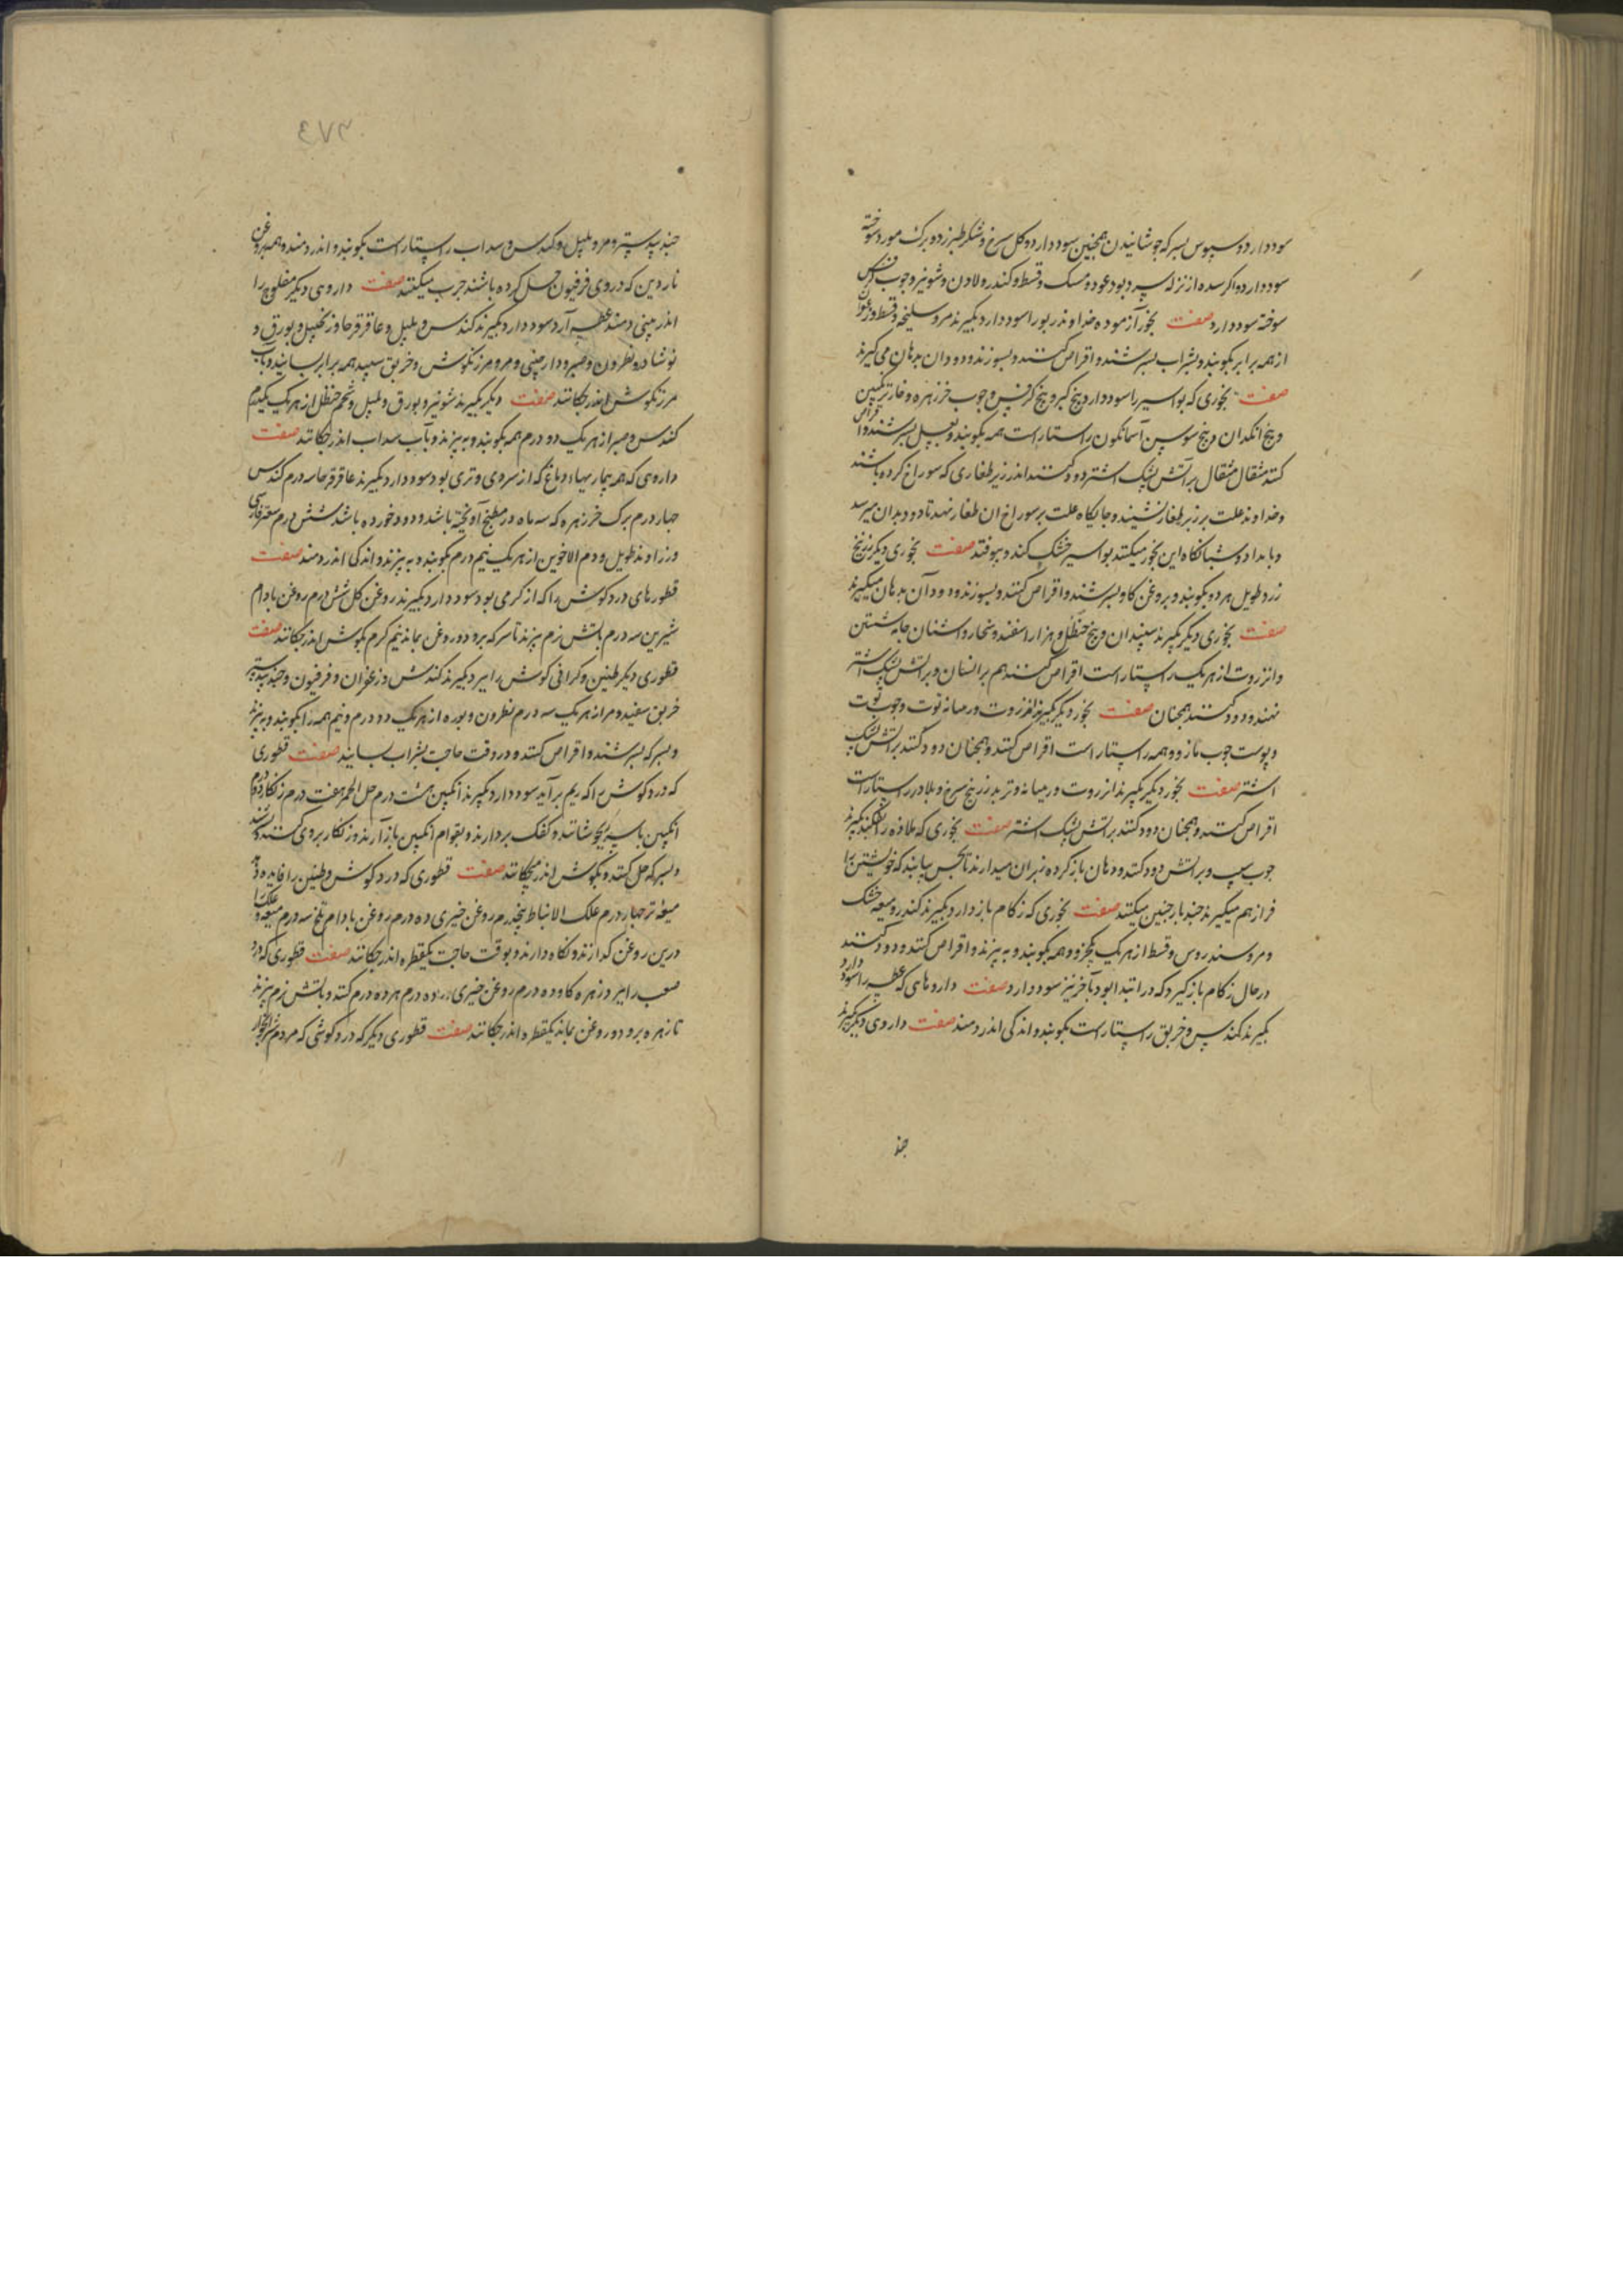 سود دارد و سبوس بسرکه جوشانیدن همچنین سود دارد و کل سرخ و شکر طبرزد و برک مورد سوخته
سود دارد و اکر سده از نزله سرد بود عود و مسک و قسط و کندر و لادن و شونیز و چوب
سوخته سود دارد صفت بخور آزموده خداوند ربو را سود دارد بکیرند مر و سلیخه و قسط و زعفران
از همه برابر بکوبند و بشراب بسرشند و اقراص کنند و بسوزند و دود ان بدهان می کیرند
صفت بخوری که بواسیر را سود دارد بیخ کبر و بیخ کرفس و چوب خرزهره و خار ترنکبین
و بیخ انکدان و بیخ سوسن آسمانکون راستا راست همه بکوبند و بعسل بسرشند و اقراص
کنند مثقال مثقال بر آتش پشک اشتر دود کنند اندر زیر طغاری که سوراخ کرده باشند
و خداوند علت بر زبر طغار نشیند و جایکاه علت بر سوراخ ان طغار نهد تا دود بدان میرسد
و بامداد و شبانکاه این بخور میکنند بواسیر خشک کند و بیوفتد صفت بخوری دیکر زرنیخ
زرد طویل هر دو بکوبند و بروغن کاو بسرشند و اقراص کنند و بسوزند و دود آن بدهان میکیرند
صفت بخوری دیکر بکیرند سپندان و بیخ حنظل و هزار اسفند و شخار و اشنان جامه شستن
و انزروت از هر یک راستا راست اقراص کنند هم بر انسان و بر آتش پشک اشتر
نهند و دود کنند همچنان صفت بخور دیکر بکیرند انزروت و رمیانه توت و چوب توت
و پوست چوب مازو و همه راستا راست اقراص کنند و همچنان دود کنند بر آتش پشک
اشتر صفت بخور دیکر بکیرند انزروت و رمیانه و تربد زرنیخ سرخ و بلادر راستا راست
اقراص کنند و همچنان دود کنند بر آتش پشک اشتر صفت بخوری که ملازه را بکیرند
چوب سپ و بر آتش دود کنند و دهان باز کرده بر ان میدارند تا بحس بیابند که خویشتن را
فراز هم میکیرند چند بار چنین میکنند صفت بخوری که زکام باز دارد بکیرند کندر و میعه خشک
و مر و سندروس و قسط از هر یک یکجزو و همه بکوبند و به بیزند و اقراص کنند و دود کنند
در حال زکام باز کیرد که در ابتدا بود و بآخر نیز سود دارد صفت داروهای که عطسه را سود دارد
بکیرند کندس و خربق راستا راست بکوبند و اندکی اندر دمند صفت داروی دیکر بکیرند
جند
٤٧٣
جندبیدستر و مر و پلپل و کندس و سداب راستا راست بکوبند و اندر دمند و همه بروغن
ناردین که در وی فرفیون حل کرده باشند چرب میکنند صفت داروی دیکر مفلوج را
اندر بینی دمند عطسه آرد سود دارد بکیرند کندس و پلپل و عاقرقرحا و زنجبیل و بورق و
نوشادر و نطرون و صبر و دارچینی و مر و مرزنکوش و خربق سپید همه برابر بسایند و بآب
مرزنکوش اندر چکانند صفت دیکر بکیرند شونیز و بورق و پلپل و شحم حنظل از هر یک یکدرم
کندس و صبر از هر یک دو درم همه بکوبند و به بیزند و بآب سداب اندر چکانند صفت
داروی که همه بیماریهاء دماغ که از سردی و تری بود سود دارد بکیرند عاقرقرحا سه درم کندس
چهار درم برک خرزهره که سه ماه در مطبخ آونخته باشد و دود خورده باشد شش درم سعتر فارسی
و زراوند طویل و دم الاخوین از هر یک نیم درم بکوبند و به بیزند و اندکی اندر دمند صفت
قطورهای درد کوش را که از کرمی بود سود دارد بکیرند روغن کل شش درم روغن بادام
شیرین سه درم بآتش نرم بپزند تا سرکه برود و روغن بماند نیم کرم بکوش اندر چکانند صفت
قطوری دیکر طنین و کرانی کوش را ببرد بکیرند کندش و زعفران و فرفیون و جندبیدستر
خربق سفید و مر از هر یک سه درم نطرون و بوره از هر یک دو درم و نیم همه را بکوبند و به بیزند
و بسرکه بسرشند و اقراص کنند و در وقت حاجت بشراب بسایند صفت قطوری
که درد کوش را که ریم بر آید سود دارد بکیرند انکبین هشت درم خل الخمر هفت درم زنکار دو درم
انکبین با سرکه بجوشانند و کفک بردارند و بقوام انکبین باز آرند و زنکار بر وی کنند
و بسرکه حل کنند و بکوش اندر میچکانند صفت قطوری که درد کوش و طنین را فایده دهد
میعه تر چهار درم علک الانباط پنجدرم روغن خیری ده درم روغن بادام تلخ سه درم میعه و علک را
درین روغن کدازند و نکاه دارند و بوقت حاجت یکقطره اندر چکانند صفت قطوری که درد
صعب را ببرد زهره کاو ده درم روغن خیری ده درم هر ده درم کنند و بآتش نرم بپزند
تا زهره برود و روغن بماند یکقطره اندر چکانند صفت قطوری دیکر که درد کوشی که مردم